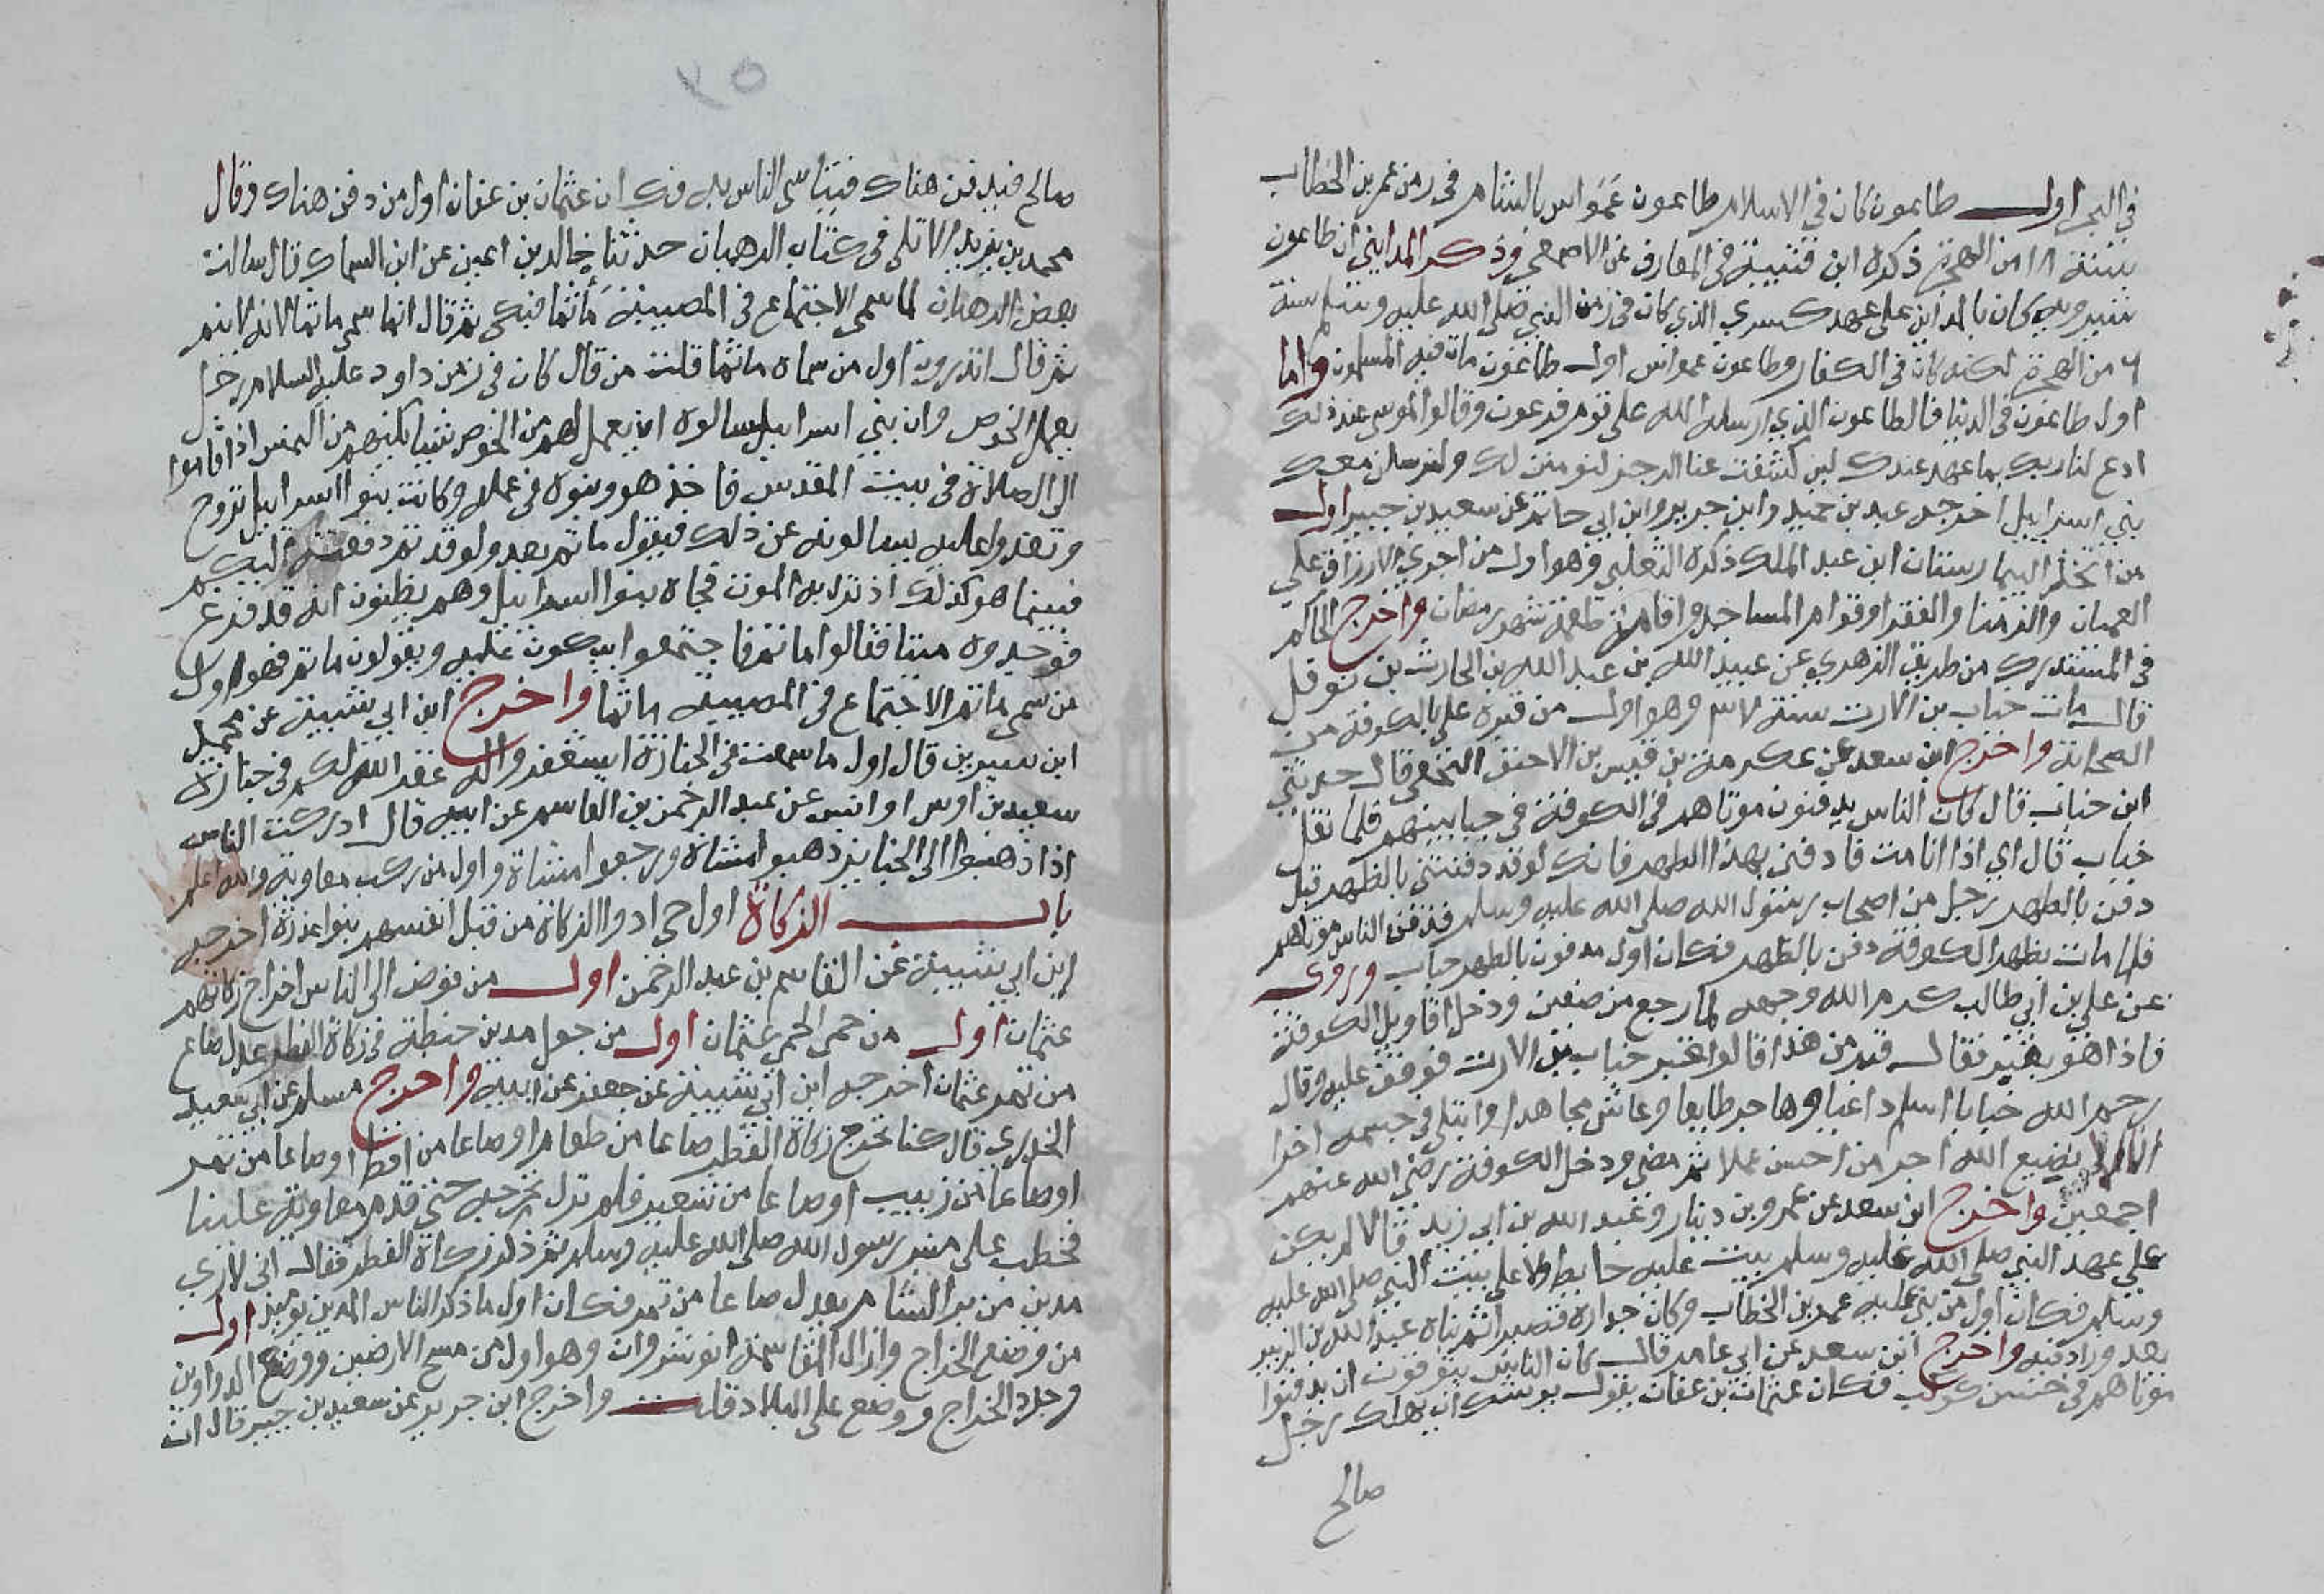 في البحر اول طاعون كان في الاسلام طاعون عمواس بالشام في زمن عمر بن الخطاب
سنة ١٨ من الهجرة ذكره ابن قتيبة في المعارف عن الاصمعي وذكر المدايني ان طاعون
شيرويه كان بالمداين على عهد كسري الذي كان في زمن النبي صلى الله عليه وسلم سنة
٦ من الهجرة لكنه كان في الكفار وطاعون عمواس اول طاعون مات فيه المسلمون واما
اول طاعون في الدنيا فالطاعون الذي ارسله الله على قوم فرعون وقالوا لموسى عند ذلك
ادع لنا ربك بما عهد عندك لين كشفت عنا الرجز لنومنن لك ولنرسلن معك
بني اسراييل اخرجه عبد بن حميد وابن جرير وابن ابي حاتم عن سعيد بن جبير اول
من اتخذ البيمارستان ابن عبد الملك ذكره الثعلبي وهو اول من اجري الارزاق على
العميان والزمنا والفقرا وقوام المساجد واقام طعمة شهر رمضان واخرج الحاكم
في المستدرك من طريق الزهري عن عبيد الله بن عبد الله بن الحارث بن نوفل
قال مات خباب بن الارت سنة ٣٧ وهو اول من قبره علي بالكوفة من
الصحابة واخرج ابن سعد عن عكرمة بن قيس بن الاحنف النخعي قال حدثني
ابن خباب قال كان الناس يدفنون موتاهم في الكوفة في جبابينهم فلما ثقل
خباب قال اي اذا انا مت فادفني بهذا الظهر فانك لو قد دفنتني بالظهر قيل
دفن بالظهر رجل من اصحاب رسول الله صلى الله عليه وسلم فدفن الناس موتاهم
فلما مات بظهر الكوفة دفن بالظهر فكان اول مدفون بالظهر خباب وروى
عن علي بن ابي طالب كرم الله وجهه لما رجع من صفين ودخل اقاويل الكوفة
فاذا هو بقبر فقال قبر من هذا قالوا قبر خباب بن الارت فوقف عليه وقال
رحم الله خبابا اسلم راغبا وهاجر طايعا وعاش مجاهدا وابتلى في جسمه اخرا
لا يضيع الله اجر من احسن عملا ثم مضى ودخل الكوفة رضي الله عنهم
اجمعين واخرج ابن سعد عن عمرو بن دينار وعبيد الله بن ابي زيد قالا لم يكن
على عهد النبي صلى الله عليه وسلم بيت عليه حايط ولا على بيت النبي صلى الله عليه
وسلم فكان اول من بنى عليه عمر بن الخطاب وكان جداره قصيرا ثم بناه عبد الله بن الزبير
بعد وزاد فيه واخرج ابن سعد عن ابي عامر قال كان الناس يتوفون ان يدفنوا
موتاهم في حش كوكب فكان عثمان بن عفان يقول يوشك ان يهلك رجل
صالح
٢٥
صالح فيدفن هناك فيتاسى الناس به فكان عثمان بن عفان اول من دفن هناك وقال
محمد بن يزيد الابلي في كتاب الرهبان حدثنا خالد بن اعين عن ابن السماك قال سالت
بعض الرهبان لما سمي الاجتماع في المصيبة مأتما فبكى ثم قال انما سمي ماتما لانه لا يتم
ثم قال اتدرون اول من سماه ماتما قلت من قال كان في زمن داود عليه السلام رجل
يعمل الخوص وان بني اسراييل سالوه ان يعمل لهم من الخوص شيا يكنهم من الشمس اذا قاموا
الى الصلاة في بيت المقدس فاخذ هو وبنوه في عمله وكانت بنوا اسراييل تروح
وتغدوا عليه يسالونه عن ذلك فيقول ما تم بعد ولو قد تم دفعته اليكم
فبينما هو كذلك اذ نزل به الموت فجاه بنوا اسراييل وهم يظنون انه قد فرغ
فوجدوه ميتا فقالوا ما تم فاجتمعوا يبكون عليه ويقولون ما تم فهو اول
من سمي ماتم الاجتماع في المصيبة ماتما واخرج ابن ابي شيبة عن محمد
ابن سيرين قال اول ما سمعت في الجنازة استغفروا له غفر الله لكم في جنازة
سعيد بن اوس او انس عن عبد الرحمن بن القاسم عن ابيه قال ادركت الناس
اذا ذهبوا الى الجنايز ذهبوا مشاة ورجعوا مشاة واول من ركب معاوية والله اعلم
باب الزكاة اول حي ادوا الزكاة من قبل انفسهم بنوا عذرة اخرجه
ابن ابي شيبة عن القاسم بن عبد الرحمن اول من فوض الى الناس اخراج زكاتهم
عثمان اول من حمى الحمى عثمان اول من جعل مدين حنطة في زكاة الفطر عدل صاع
من تمر عثمان اخرجه ابن ابي شيبة عن جعفر عن ابيه واخرج مسلم عن ابي سعيد
الخدري قال كنا نخرج زكاة الفطر صاعا من طعام او صاعا من اقط او صاعا من تمر
او صاعا من زبيب او صاعا من شعير فلم نزل نخرجه حتى قدم معاوية علينا
فخطب على منبر رسول الله صلى الله عليه وسلم ثم ذكر زكاة الفطر فقال اني لاري
مدين من بر الشام يعدل صاعا من تمر فكان اول ما ذكر الناس المدين يوميذ اول
من وضع الخراج وازال المقاسمة انوشروان وهو اول من مسح الارضين ووضع الدواوين
وجدد الخراج ووضع على البلاد قلت واخرج ابن جرير عن سعيد بن جبير قال ان